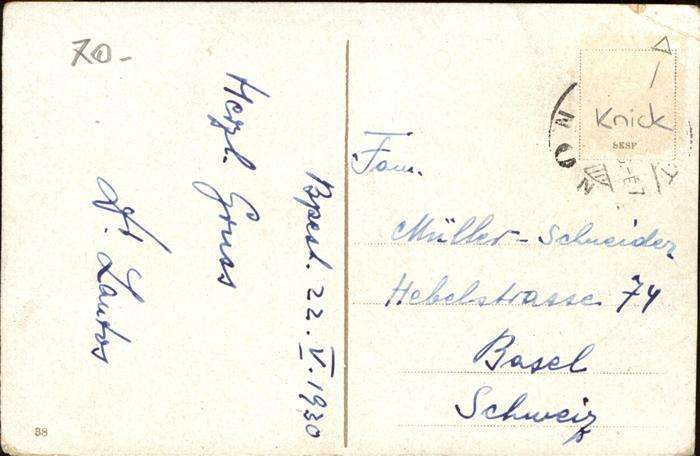 70.-
Bpest. 22. V. 1930
Herzl. Gruss
Lantos
38
Knick
SKSF
Fam.
Müller-Schneider
Hebelstrasse 74
Basel
Schweiz